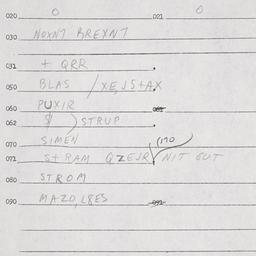 020 0 021 0
030 NOXN7 BREXN7
031 + QRR
050 BLAS / XE, JS+AX
060 PUXIR
062 $ ) STRUP
070 SIMEN (170
071 S+RAM QZEJR NIT GUT
080 STROM
090 MAZO, L8ES